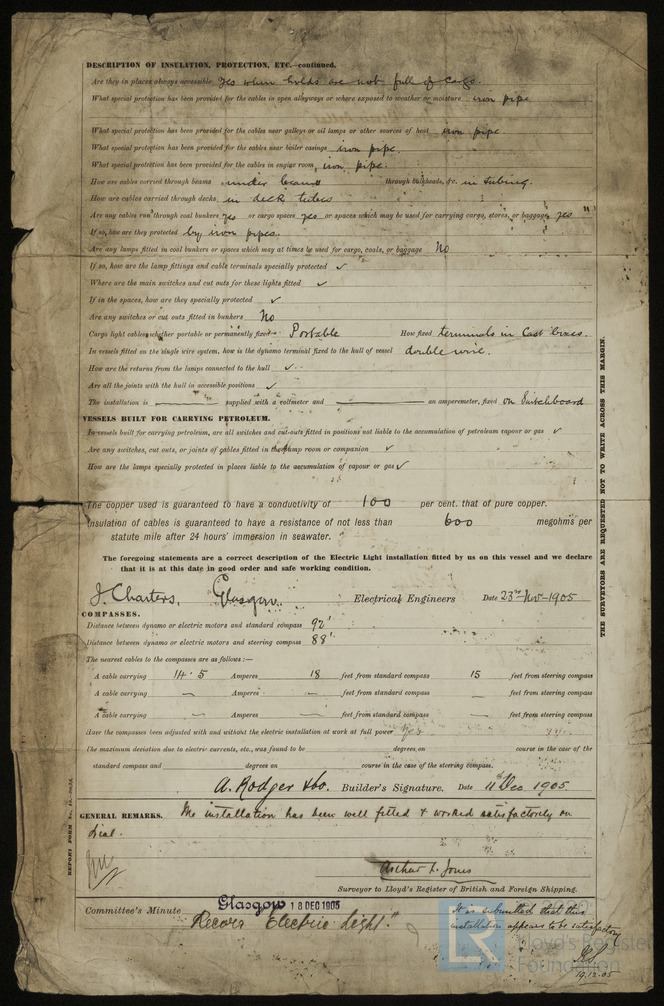 DESCRIPTION OF INSULATION, PROTECTION, ETC.—continued.
Are they in places always accessible yes when holds are not full of cargo.
What special protection has been provided for the cables in open alleyways or where exposed to weather or moisture iron pipe
What special protection has been provided for the cables near galleys or oil lamps or other sources of heat iron pipe
What special protection has been provided for the cables near boiler casings iron pipe
What special protection has been provided for the cables in engine room iron pipe.
How are cables carried through beams under beams through bulkheads, &c. in tubing.
How are cables carried through decks in deck tubes
Are any cables run through coal bunkers yes or cargo spaces yes or spaces which may be used for carrying cargo, stores, or baggage yes
If so, how are they protected by iron pipes.
Are any lamps fitted in coal bunkers or spaces which may at times be used for cargo, coals, or baggage No
If so, how are the lamp fittings and cable terminals specially protected ✓
Where are the main switches and cut outs for these lights fitted ✓
If in the spaces, how are they specially protected ✓
Are any switches or cut outs fitted in bunkers No
Cargo light cables, whether portable or permanently fixed Portable How fixed terminals in Cast boxes.
In vessels fitted on the single wire system, how is the dynamo terminal fixed to the hull of vessel double wire.
How are the returns from the lamps connected to the hull ✓
Are all the joints with the hull in accessible positions ✓
The installation is supplied with a voltmeter and an amperemeter, fixed on Switchboard
VESSELS BUILT FOR CARRYING PETROLEUM.
In vessels built for carrying petroleum, are all switches and cut-outs fitted in positions not liable to the accumulation of petroleum vapour or gas ✓
Are any switches, cut outs, or joints of cables fitted in the pump room or companion ✓
How are the lamps specially protected in places liable to the accumulation of vapour or gas ✓
The copper used is guaranteed to have a conductivity of 100 per cent. that of pure copper.
Insulation of cables is guaranteed to have a resistance of not less than 600 megohms per
statute mile after 24 hours' immersion in seawater.
The foregoing statements are a correct description of the Electric Light installation fitted by us on this vessel and we declare
that it is at this date in good order and safe working condition.
J. Charters, Glasgow. Electrical Engineers Date 23rd Nov 1905
COMPASSES.
Distance between dynamo or electric motors and standard compass 92'
Distance between dynamo or electric motors and steering compass 88'
The nearest cables to the compasses are as follows:—
A cable carrying 14.5 Amperes 18 feet from standard compass 15 feet from steering compass
A cable carrying — Amperes — feet from standard compass — feet from steering compass
A cable carrying — Amperes — feet from standard compass — feet from steering compass
Have the compasses been adjusted with and without the electric installation at work at full power Yes
The maximum deviation due to electric currents, etc., was found to be degrees on course in the case of the
standard compass and degrees on course in the case of the steering compass.
A. Rodger & Co. Builder's Signature. Date 11th Dec 1905.
GENERAL REMARKS. The installation has been well fitted & worked satisfactorily on
trial.
Arthur L. Jones
Surveyor to Lloyd's Register of British and Foreign Shipping.
Committee's Minute Glasgow 18 DEC 1905
"Record Electric Light."
It is submitted that this
installation appears to be satisfactory
19.12.05
THE SURVEYORS ARE REQUESTED NOT TO WRITE ACROSS THIS MARGIN.
LR
Lloyd's Register
Foundation